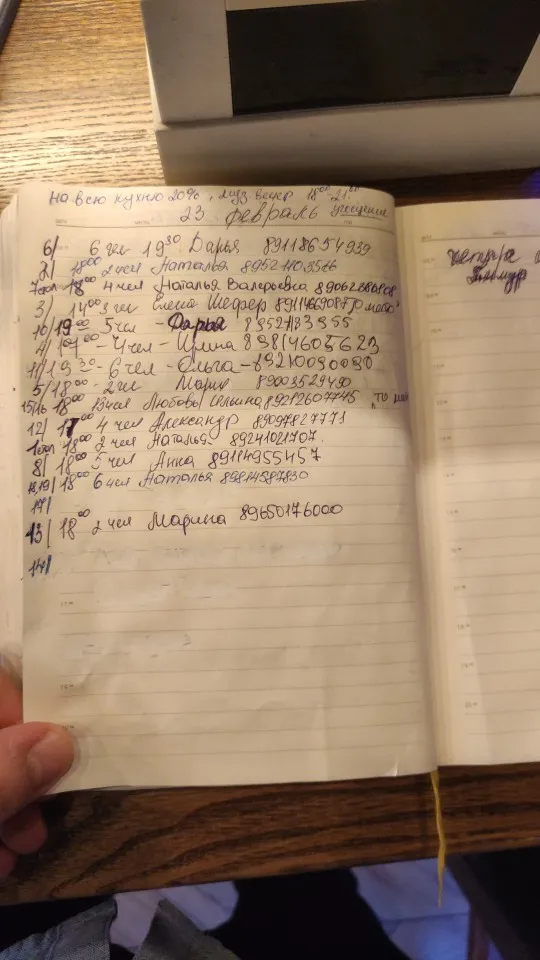 на всю кухню 20%, муз вечер 18⁰⁰-21⁰⁰
23 февраль
6/ 6 чел 19³⁰ Дарья 89118654939
2/ 18⁰⁰ 2 чел Наталья 89521103566
18⁰⁰ 4 чел Наталья Валерьевна
3/ 14⁰⁰ 3 чел Елена Шефер
10/ 19⁰⁰ 5 чел - Дарья 8952183955
4/ 4 чел - Ирина 89814605623
11/ 19³⁰ - 6 чел - Ольга - 89210090090
5/ 18⁰⁰ - 2 чел Мария 89003529490
15/16 18⁰⁰ 13 чел Любовь 89212607745
12/ 4 чел Александр 89097827771
18⁰⁰ 2 чел Наталья 89241021707.
8/ 18⁰⁰ 5 чел Анна 89114955457
18,19/ 18⁰⁰ 6 чел Наталья 89814587830
17/
13/ 18⁰⁰ 2 чел Марина 89650176000
14/